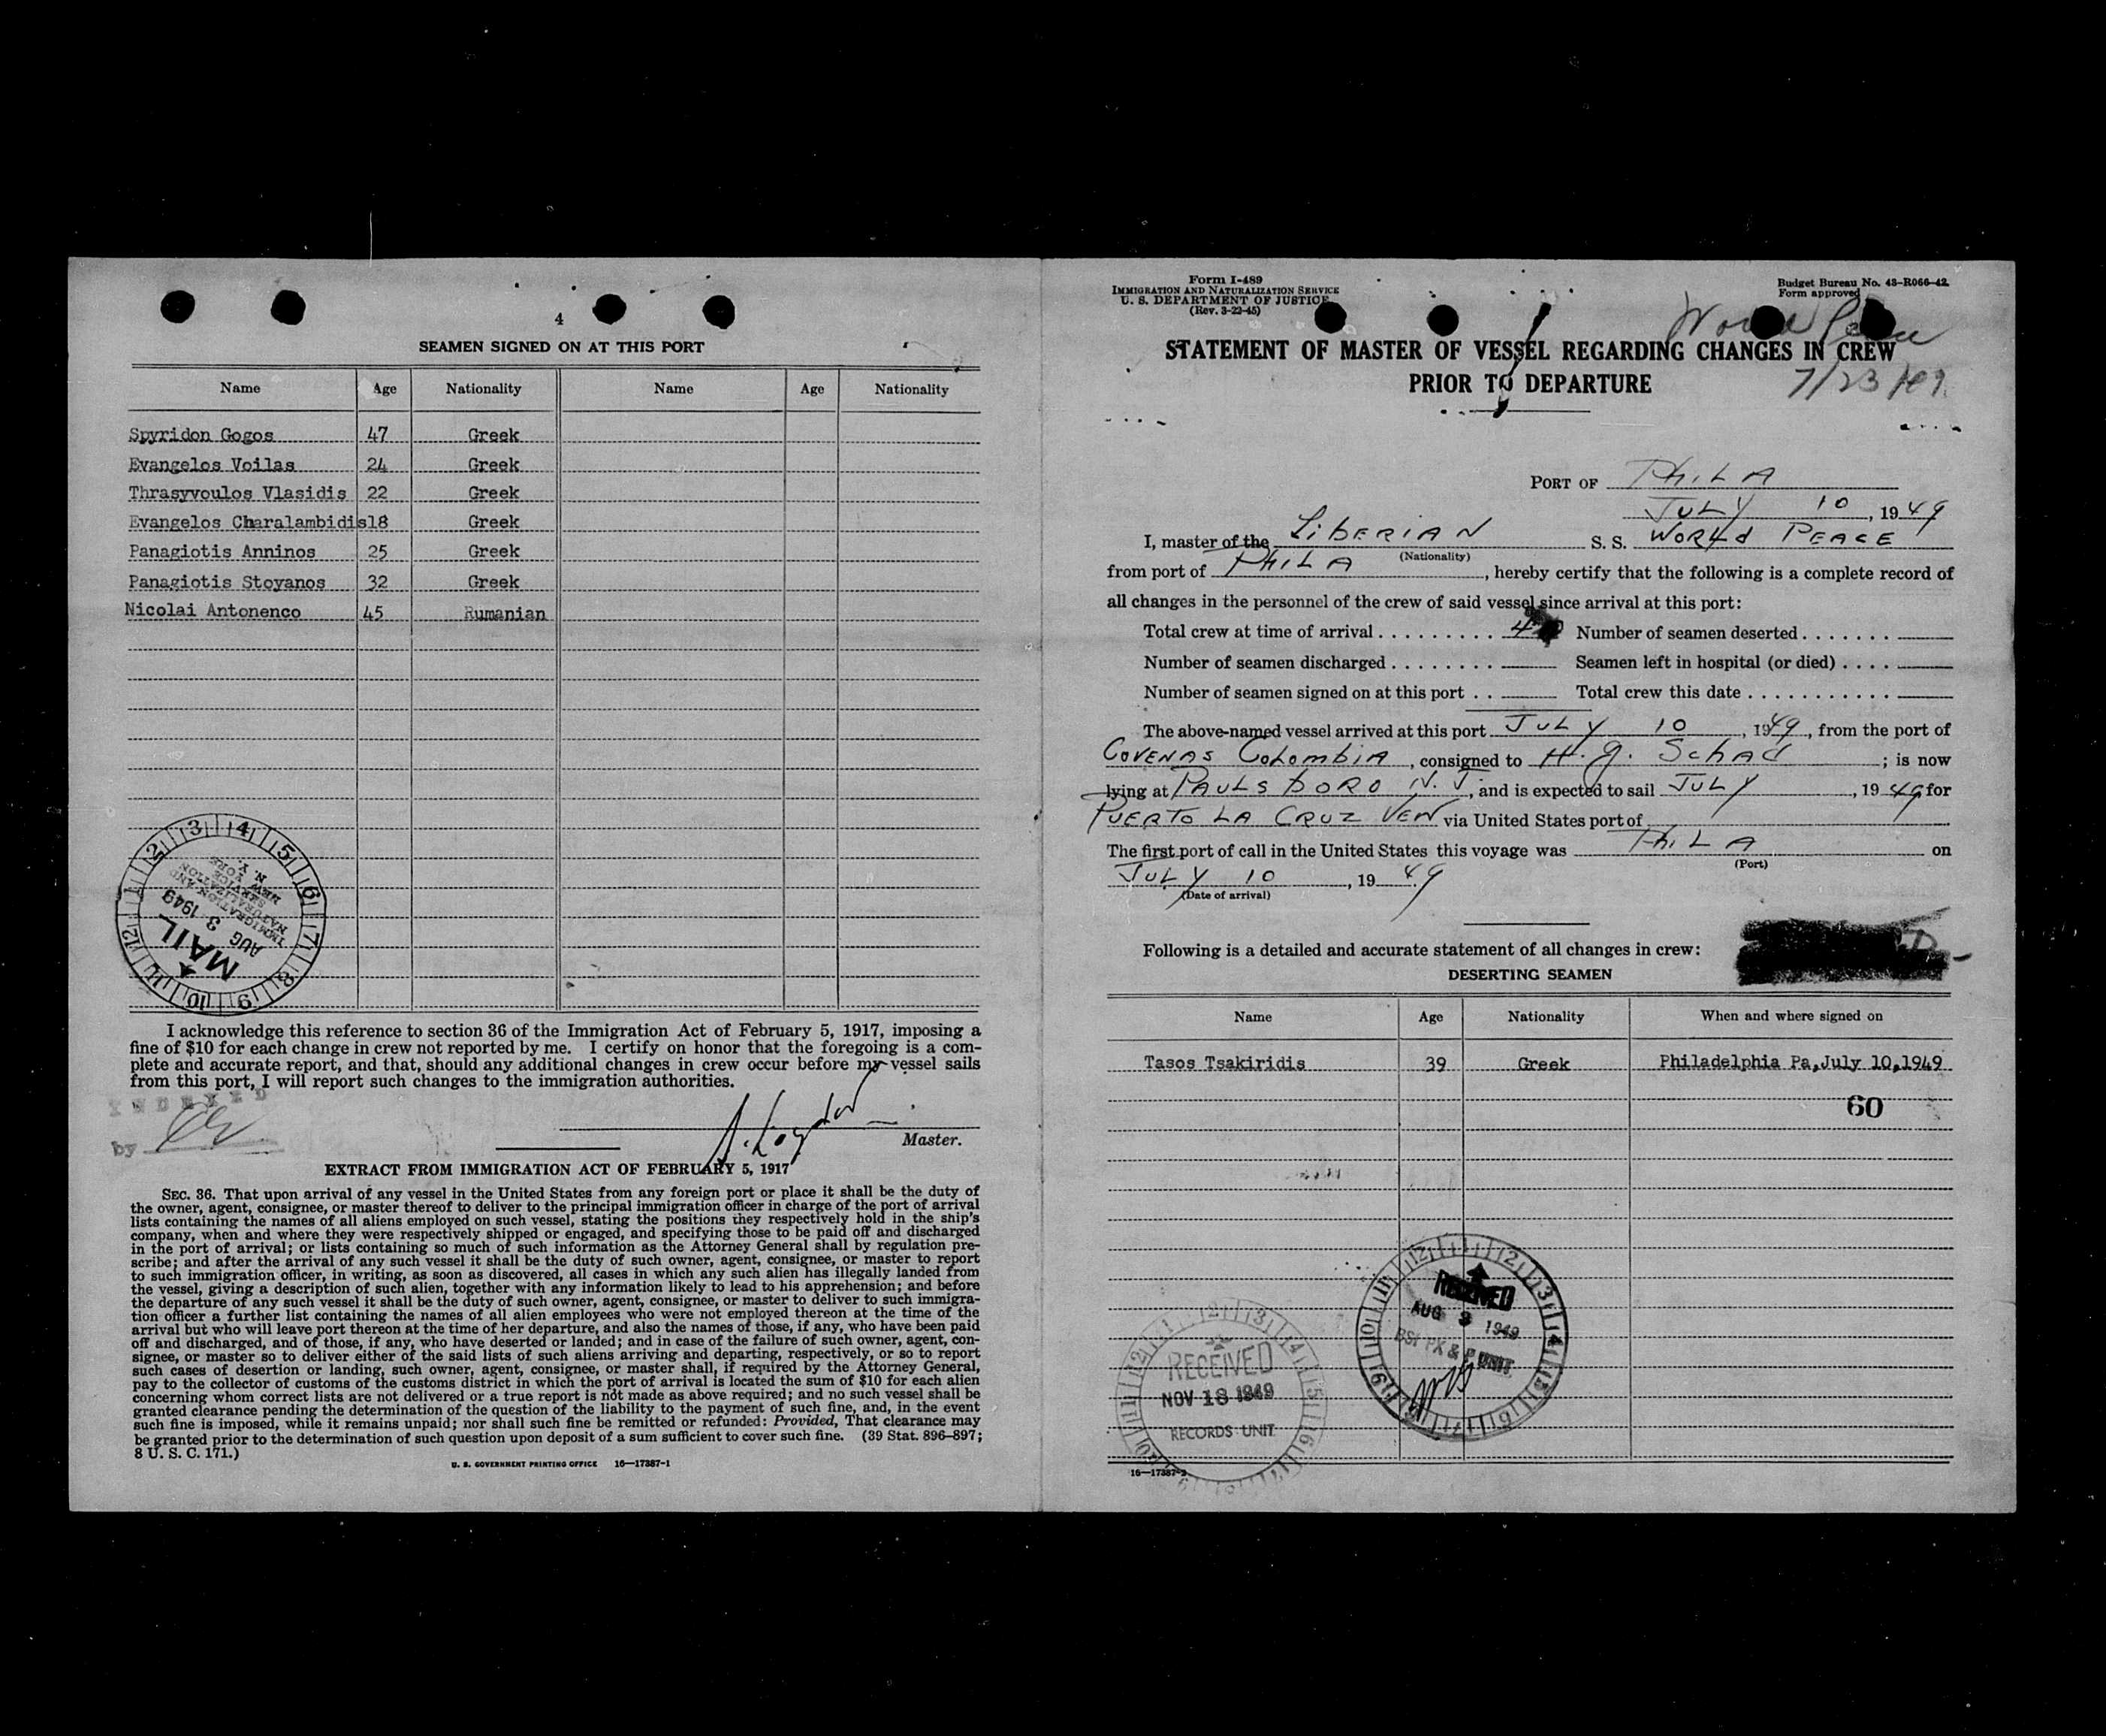 4
SEAMEN SIGNED ON AT THIS PORT
Name Age Nationality Name Age Nationality
Spyridon Gogos 47 Greek
Evangelos Voilas 24 Greek
Thrasyvoulos Vlasidis 22 Greek
Evangelos Charalambidis 18 Greek
Panagiotis Anninos 25 Greek
Panagiotis Stoyanos 32 Greek
Nicolai Antonenco 45 Rumanian
MAIL
AUG 3 1949
IMMIGRATION AND
NATURALIZATION
SERVICE
NEW YORK
N. Y.
I acknowledge this reference to section 36 of the Immigration Act of February 5, 1917, imposing a
fine of $10 for each change in crew not reported by me. I certify on honor that the foregoing is a com-
plete and accurate report, and that, should any additional changes in crew occur before my vessel sails
from this port, I will report such changes to the immigration authorities.
INDEXED
by
Master.
EXTRACT FROM IMMIGRATION ACT OF FEBRUARY 5, 1917
SEC. 36. That upon arrival of any vessel in the United States from any foreign port or place it shall be the duty of
the owner, agent, consignee, or master thereof to deliver to the principal immigration officer in charge of the port of arrival
lists containing the names of all aliens employed on such vessel, stating the positions they respectively hold in the ship's
company, when and where they were respectively shipped or engaged, and specifying those to be paid off and discharged
in the port of arrival; or lists containing so much of such information as the Attorney General shall by regulation pre-
scribe; and after the arrival of any such vessel it shall be the duty of such owner, agent, consignee, or master to report
to such immigration officer, in writing, as soon as discovered, all cases in which any such alien has illegally landed from
the vessel, giving a description of such alien, together with any information likely to lead to his apprehension; and before
the departure of any such vessel it shall be the duty of such owner, agent, consignee, or master to deliver to such immigra-
tion officer a further list containing the names of all alien employees who were not employed thereon at the time of the
arrival but who will leave port thereon at the time of her departure, and also the names of those, if any, who have been paid
off and discharged, and of those, if any, who have deserted or landed; and in case of the failure of such owner, agent, con-
signee, or master so to deliver either of the said lists of such aliens arriving and departing, respectively, or so to report
such cases of desertion or landing, such owner, agent, consignee, or master shall, if required by the Attorney General,
pay to the collector of customs of the customs district in which the port of arrival is located the sum of $10 for each alien
concerning whom correct lists are not delivered or a true report is not made as above required; and no such vessel shall be
granted clearance pending the determination of the question of the liability to the payment of such fine, and, in the event
such fine is imposed, while it remains unpaid; nor shall such fine be remitted or refunded: Provided, That clearance may
be granted prior to the determination of such question upon deposit of a sum sufficient to cover such fine. (39 Stat. 896–897;
8 U. S. C. 171.)
U. S. GOVERNMENT PRINTING OFFICE 16—17387-1
Form I-489
IMMIGRATION AND NATURALIZATION SERVICE
U. S. DEPARTMENT OF JUSTICE
(Rev. 3-22-45)
Budget Bureau No. 43-R066-42.
Form approved
World Peace
STATEMENT OF MASTER OF VESSEL REGARDING CHANGES IN CREW
PRIOR TO DEPARTURE
7/23/49
PORT OF PhiLA
JULY 10, 1949
I, master of the LibERIAN S. S. WORLd PEACE
(Nationality)
from port of PHILA, hereby certify that the following is a complete record of
all changes in the personnel of the crew of said vessel since arrival at this port:
Total crew at time of arrival . . . . . . . . . 4 Number of seamen deserted . . . . . . .
Number of seamen discharged . . . . . . . . Seamen left in hospital (or died) . . . .
Number of seamen signed on at this port . . Total crew this date . . . . . . . . . . .
The above-named vessel arrived at this port JULY 10, 1949, from the port of
COVENAS COLombIA, consigned to H. J. SchAd; is now
lying at PAULSbORO N. J., and is expected to sail JULY, 1949 for
PUERTO LA CRUZ VEN via United States port of
The first port of call in the United States this voyage was PhiLA on
(Port)
JULY 10, 1949
(Date of arrival)
Following is a detailed and accurate statement of all changes in crew:
DESERTING SEAMEN
Name Age Nationality When and where signed on
Tasos Tsakiridis 39 Greek Philadelphia Pa,July 10,1949
60
RECEIVED
AUG 3 1949
BSI PX & P UNIT
RECEIVED
NOV 18 1949
RECORDS UNIT
16—17387-2